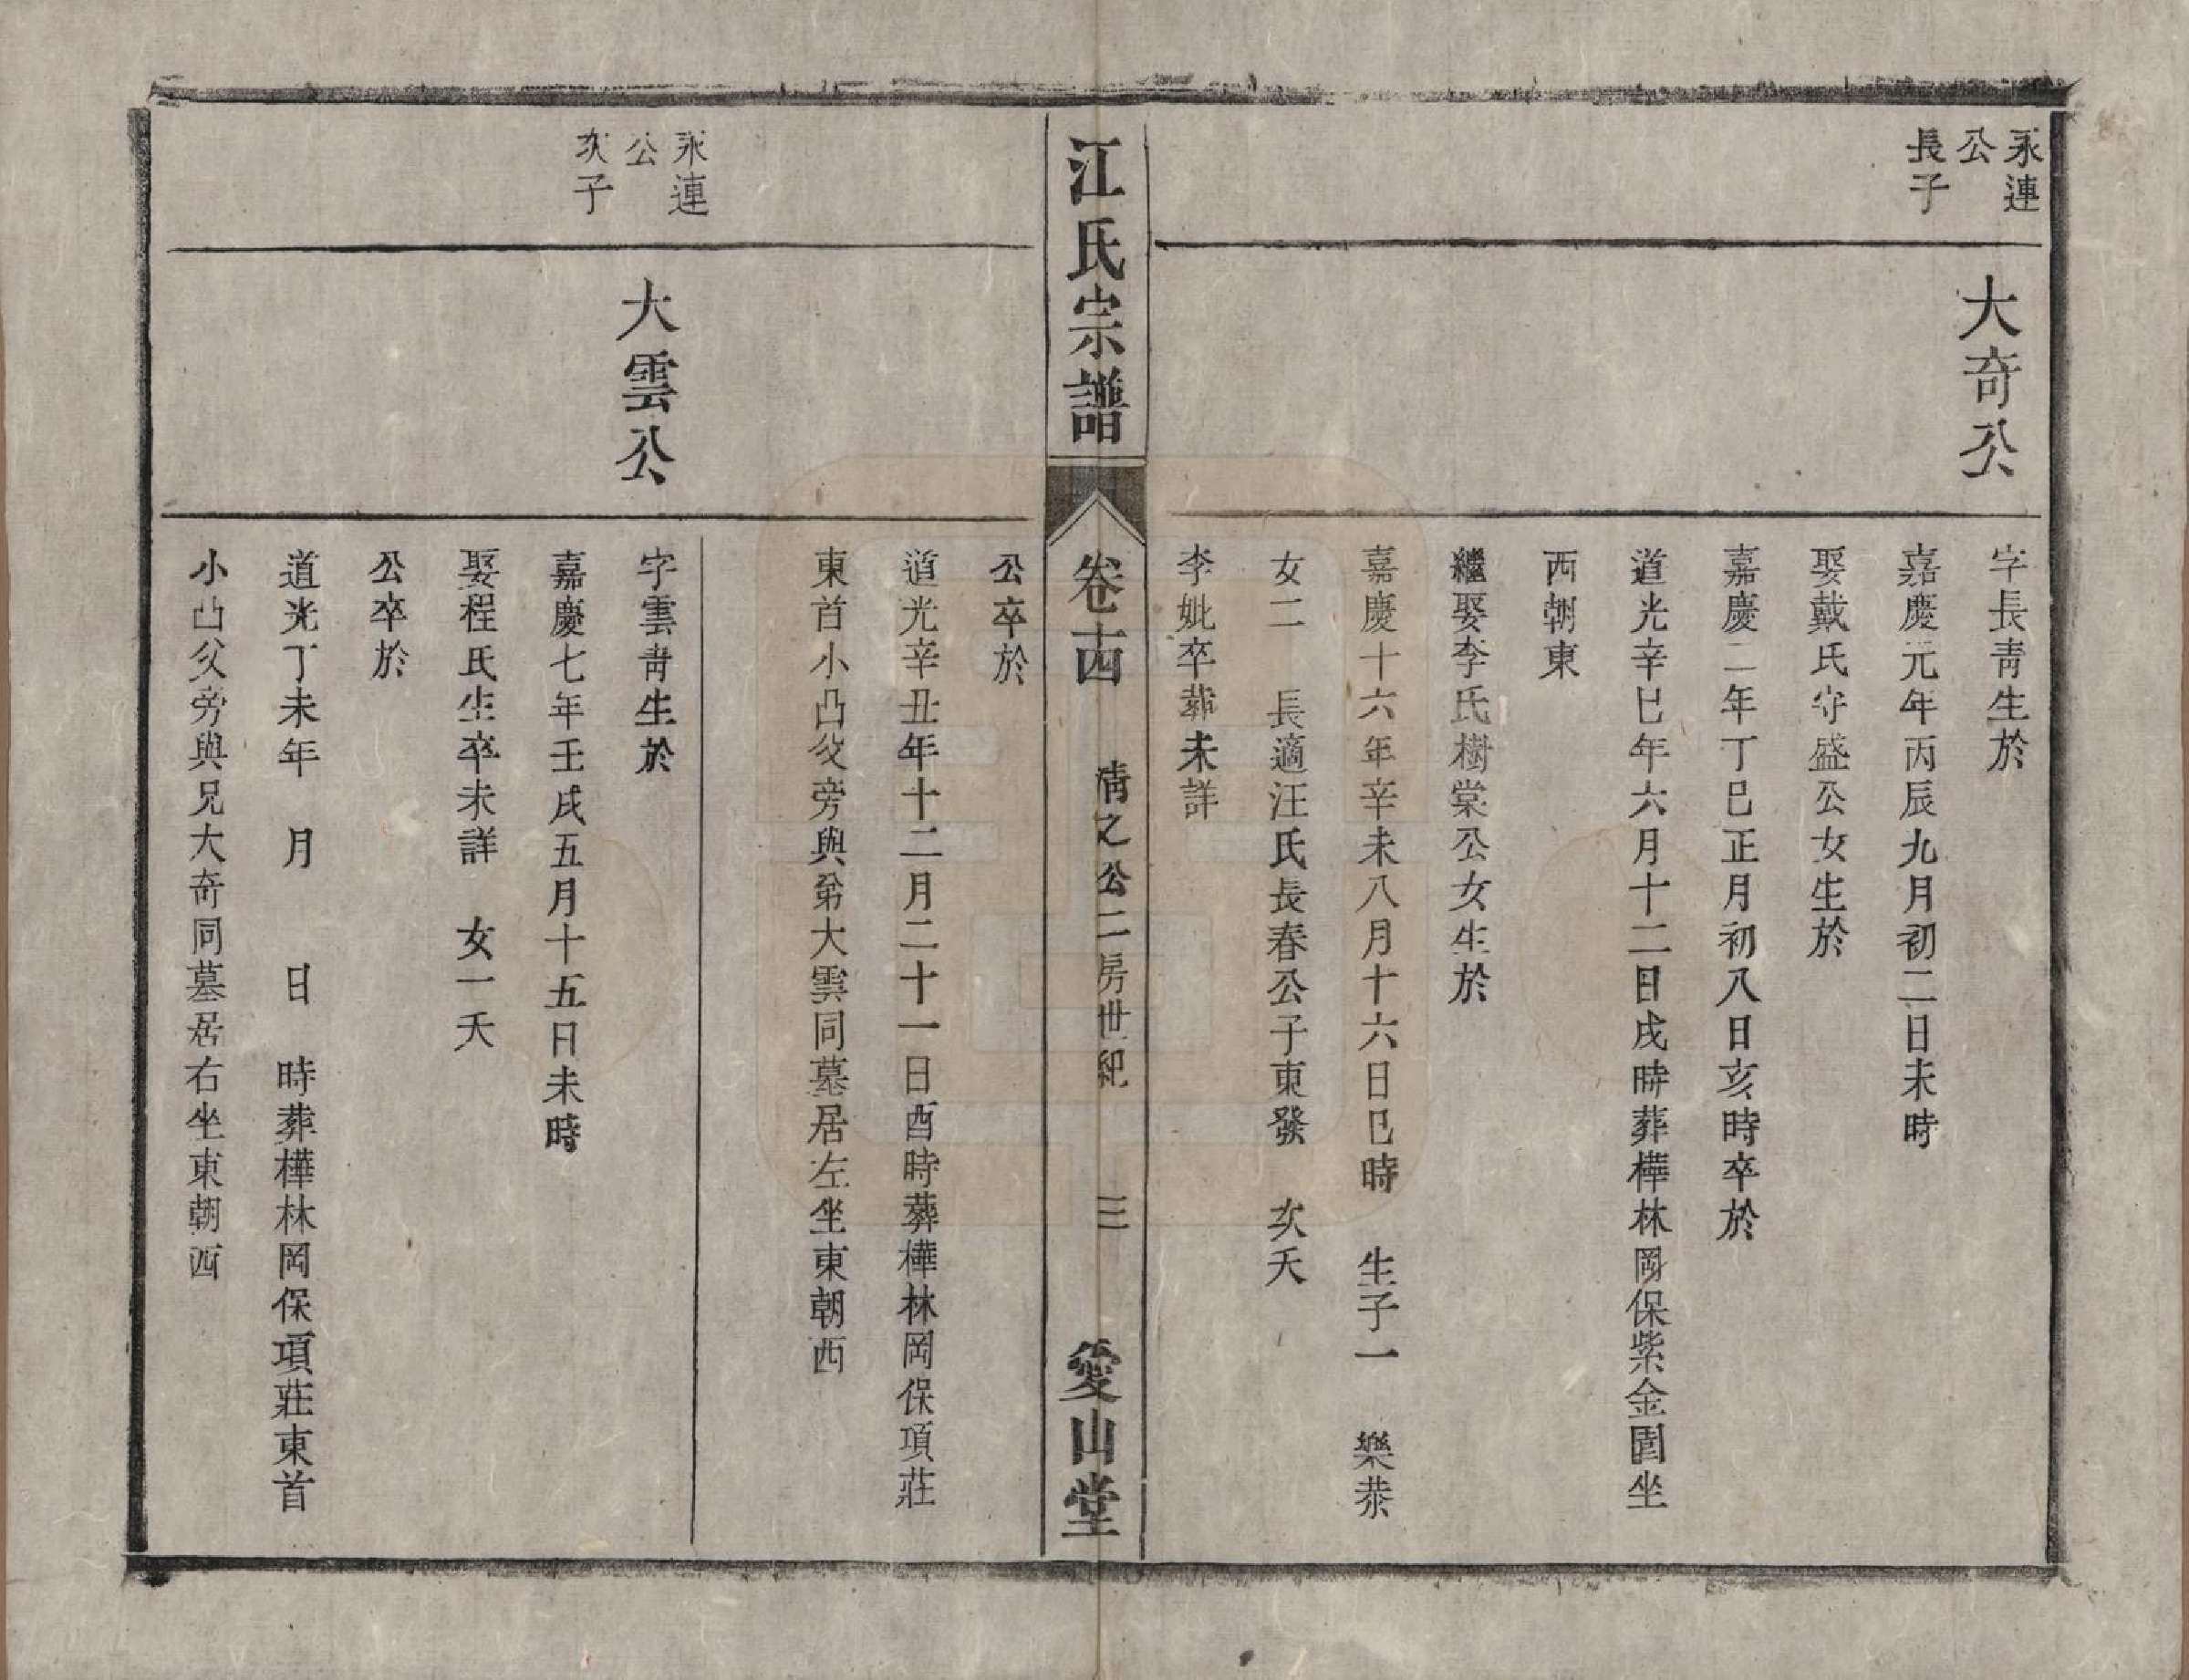 永連
公
長子
大奇公
字長青生於
嘉慶元年丙辰九月初二日未時
娶戴氏守盛公女生於
嘉慶二年丁巳正月初八日亥時卒於
道光辛巳年六月十二日戌時葬樺林岡保紫金園坐
西朝東
繼娶李氏樹棠公女生於
嘉慶十六年辛未八月十六日巳時 生子一 樂恭
女二 長適汪氏長春公子東發 次夭
李妣卒葬未詳
江氏宗譜
卷十四 清之公二房世紀 三 愛山堂
公卒於
道光辛丑年十二月二十一日酉時葬樺林岡保項莊
東首小凸父旁與弟大雲同墓居左坐東朝西
永連
公
次子
大雲公
字雲青生於
嘉慶七年壬戌五月十五日未時
娶程氏生卒未詳 女一夭
公卒於
道光丁未年 月 日 時葬樺林岡保項莊東首
小凸父旁與兄大奇同墓居右坐東朝西